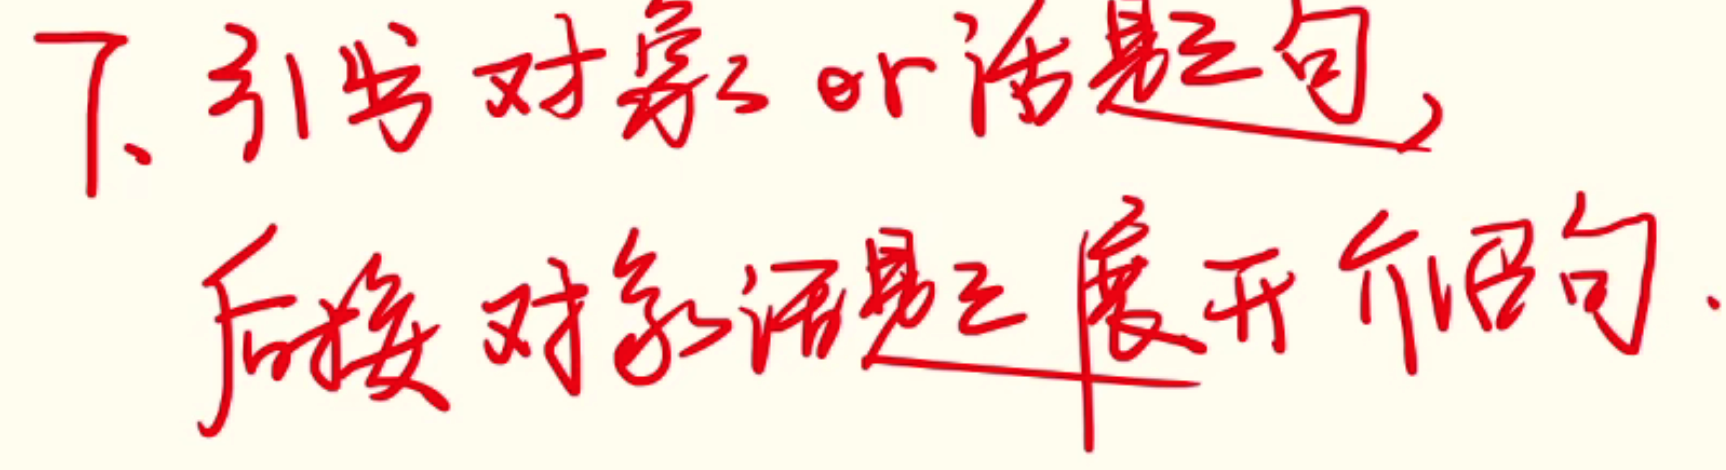 7、引出对象 or 话题句,
后接对象话题展开介绍句.